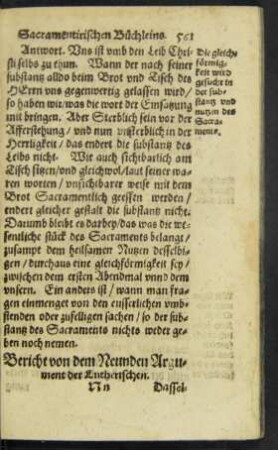 Sacramentirischen Büchleins. 561
Antwort. Vns ist vmb den Leib Chri-
sti selbs zu thun. Wann der nach seiner
substantz alldo beim Brot vnd Tisch des
HErrn vns gegenwertig gelassen wird/
so haben wir/was die wort der Einsatzung
mit bringen. Aber Sterblich sein vor der
Afferstehung/ vnd nun vnsterblich in der
Herrligkeit/ das endert die substantz des
Leibs nicht. Wie auch sichtbarlich am
Tisch sitzen/vnd gleichwol/laut seiner wa-
ren worten/ vnsichtbarer weise mit dem
Brot Sacramentlich gessen werden/
endert gleicher gestalt die substantz nicht.
Darumb bleibt es darbey/das was die we-
sentliche stück des Sacraments belangt/
zusampt dem heilsamen Nutzen desselbi-
gen/ durchaus eine gleichförmigkeit sey/
zwischen dem ersten Abendmal vnnd dem
vnsern. Ein anders ist/ wann man fra-
gen einmenget von den eusserlichen vmb-
stenden oder zufelligen sachen/ so der sub-
stantz des Sacraments nichts weder ge-
ben noch nemen.
Die gleich-
förmig-
keit wird
gesucht in
der sub-
stantz vnd
nutzen des
Sacra-
ments.
Bericht von dem Neunden Argu-
ment der Lutherischen.
Nn Dassel-